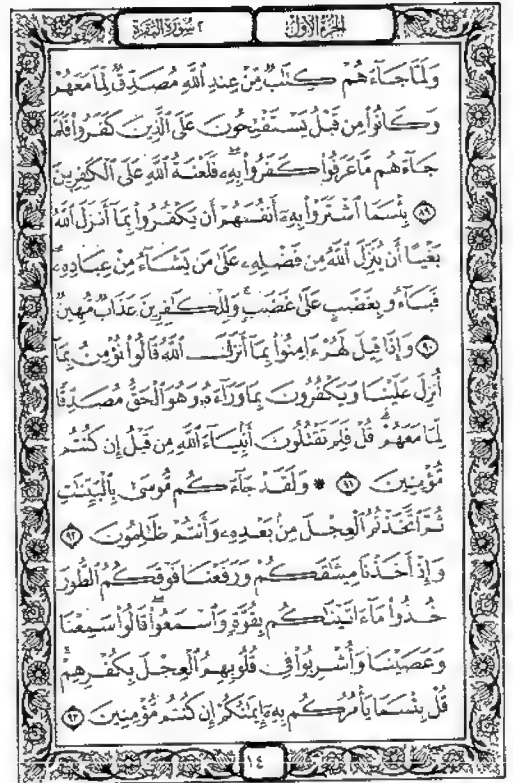 الجزء الأول
٢ سورة البقرة
وَلَمَّا جَآءَهُمْ كِتَٰبٌ مِّنْ عِندِ ٱللَّهِ مُصَدِّقٌ لِّمَا مَعَهُمْ
وَكَانُوا۟ مِن قَبْلُ يَسْتَفْتِحُونَ عَلَى ٱلَّذِينَ كَفَرُوا۟ فَلَمَّا
جَآءَهُم مَّا عَرَفُوا۟ كَفَرُوا۟ بِهِۦ فَلَعْنَةُ ٱللَّهِ عَلَى ٱلْكَٰفِرِينَ
٨٩ بِئْسَمَا ٱشْتَرَوْا۟ بِهِۦٓ أَنفُسَهُمْ أَن يَكْفُرُوا۟ بِمَآ أَنزَلَ ٱللَّهُ
بَغْيًا أَن يُنَزِّلَ ٱللَّهُ مِن فَضْلِهِۦ عَلَىٰ مَن يَشَآءُ مِنْ عِبَادِهِۦ
فَبَآءُو بِغَضَبٍ عَلَىٰ غَضَبٍ وَلِلْكَٰفِرِينَ عَذَابٌ مُّهِينٌ
٩٠ وَإِذَا قِيلَ لَهُمْ ءَامِنُوا۟ بِمَآ أَنزَلَ ٱللَّهُ قَالُوا۟ نُؤْمِنُ بِمَآ
أُنزِلَ عَلَيْنَا وَيَكْفُرُونَ بِمَا وَرَآءَهُۥ وَهُوَ ٱلْحَقُّ مُصَدِّقًا
لِّمَا مَعَهُمْ قُلْ فَلِمَ تَقْتُلُونَ أَنۢبِيَآءَ ٱللَّهِ مِن قَبْلُ إِن كُنتُم
مُّؤْمِنِينَ ٩١ * وَلَقَدْ جَآءَكُم مُّوسَىٰ بِٱلْبَيِّنَٰتِ
ثُمَّ ٱتَّخَذْتُمُ ٱلْعِجْلَ مِنۢ بَعْدِهِۦ وَأَنتُمْ ظَٰلِمُونَ ٩٢
وَإِذْ أَخَذْنَا مِيثَٰقَكُمْ وَرَفَعْنَا فَوْقَكُمُ ٱلطُّورَ
خُذُوا۟ مَآ ءَاتَيْنَٰكُم بِقُوَّةٍ وَٱسْمَعُوا۟ قَالُوا۟ سَمِعْنَا
وَعَصَيْنَا وَأُشْرِبُوا۟ فِى قُلُوبِهِمُ ٱلْعِجْلَ بِكُفْرِهِمْ
قُلْ بِئْسَمَا يَأْمُرُكُم بِهِۦٓ إِيمَٰنُكُمْ إِن كُنتُم مُّؤْمِنِينَ ٩٣
١٤